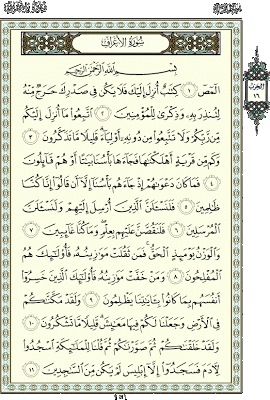 سُورَةُ الأَعْرَافِ
الحزب
١٦
بِسْمِ ٱللَّهِ ٱلرَّحْمَٰنِ ٱلرَّحِيمِ
الٓمٓصٓ ١ كِتَٰبٌ أُنزِلَ إِلَيْكَ فَلَا يَكُن فِى صَدْرِكَ حَرَجٌ مِّنْهُ
لِتُنذِرَ بِهِۦ وَذِكْرَىٰ لِلْمُؤْمِنِينَ ٢ ٱتَّبِعُوا۟ مَآ أُنزِلَ إِلَيْكُم
مِّن رَّبِّكُمْ وَلَا تَتَّبِعُوا۟ مِن دُونِهِۦٓ أَوْلِيَآءَ ۗ قَلِيلًا مَّا تَذَكَّرُونَ ٣
وَكَم مِّن قَرْيَةٍ أَهْلَكْنَٰهَا فَجَآءَهَا بَأْسُنَا بَيَٰتًا أَوْ هُمْ قَآئِلُونَ
٤ فَمَا كَانَ دَعْوَىٰهُمْ إِذْ جَآءَهُم بَأْسُنَآ إِلَّآ أَن قَالُوٓا۟ إِنَّا كُنَّا
ظَٰلِمِينَ ٥ فَلَنَسْـَٔلَنَّ ٱلَّذِينَ أُرْسِلَ إِلَيْهِمْ وَلَنَسْـَٔلَنَّ
ٱلْمُرْسَلِينَ ٦ فَلَنَقُصَّنَّ عَلَيْهِم بِعِلْمٍ ۖ وَمَا كُنَّا غَآئِبِينَ ٧
وَٱلْوَزْنُ يَوْمَئِذٍ ٱلْحَقُّ ۚ فَمَن ثَقُلَتْ مَوَٰزِينُهُۥ فَأُو۟لَٰٓئِكَ هُمُ
ٱلْمُفْلِحُونَ ٨ وَمَنْ خَفَّتْ مَوَٰزِينُهُۥ فَأُو۟لَٰٓئِكَ ٱلَّذِينَ خَسِرُوٓا۟
أَنفُسَهُم بِمَا كَانُوا۟ بِـَٔايَٰتِنَا يَظْلِمُونَ ٩ وَلَقَدْ مَكَّنَّٰكُمْ
فِى ٱلْأَرْضِ وَجَعَلْنَا لَكُمْ فِيهَا مَعَٰيِشَ ۗ قَلِيلًا مَّا تَشْكُرُونَ ١٠
وَلَقَدْ خَلَقْنَٰكُمْ ثُمَّ صَوَّرْنَٰكُمْ ثُمَّ قُلْنَا لِلْمَلَٰٓئِكَةِ ٱسْجُدُوا۟
لِـَٔادَمَ فَسَجَدُوٓا۟ إِلَّآ إِبْلِيسَ لَمْ يَكُن مِّنَ ٱلسَّٰجِدِينَ ١١
١٥١